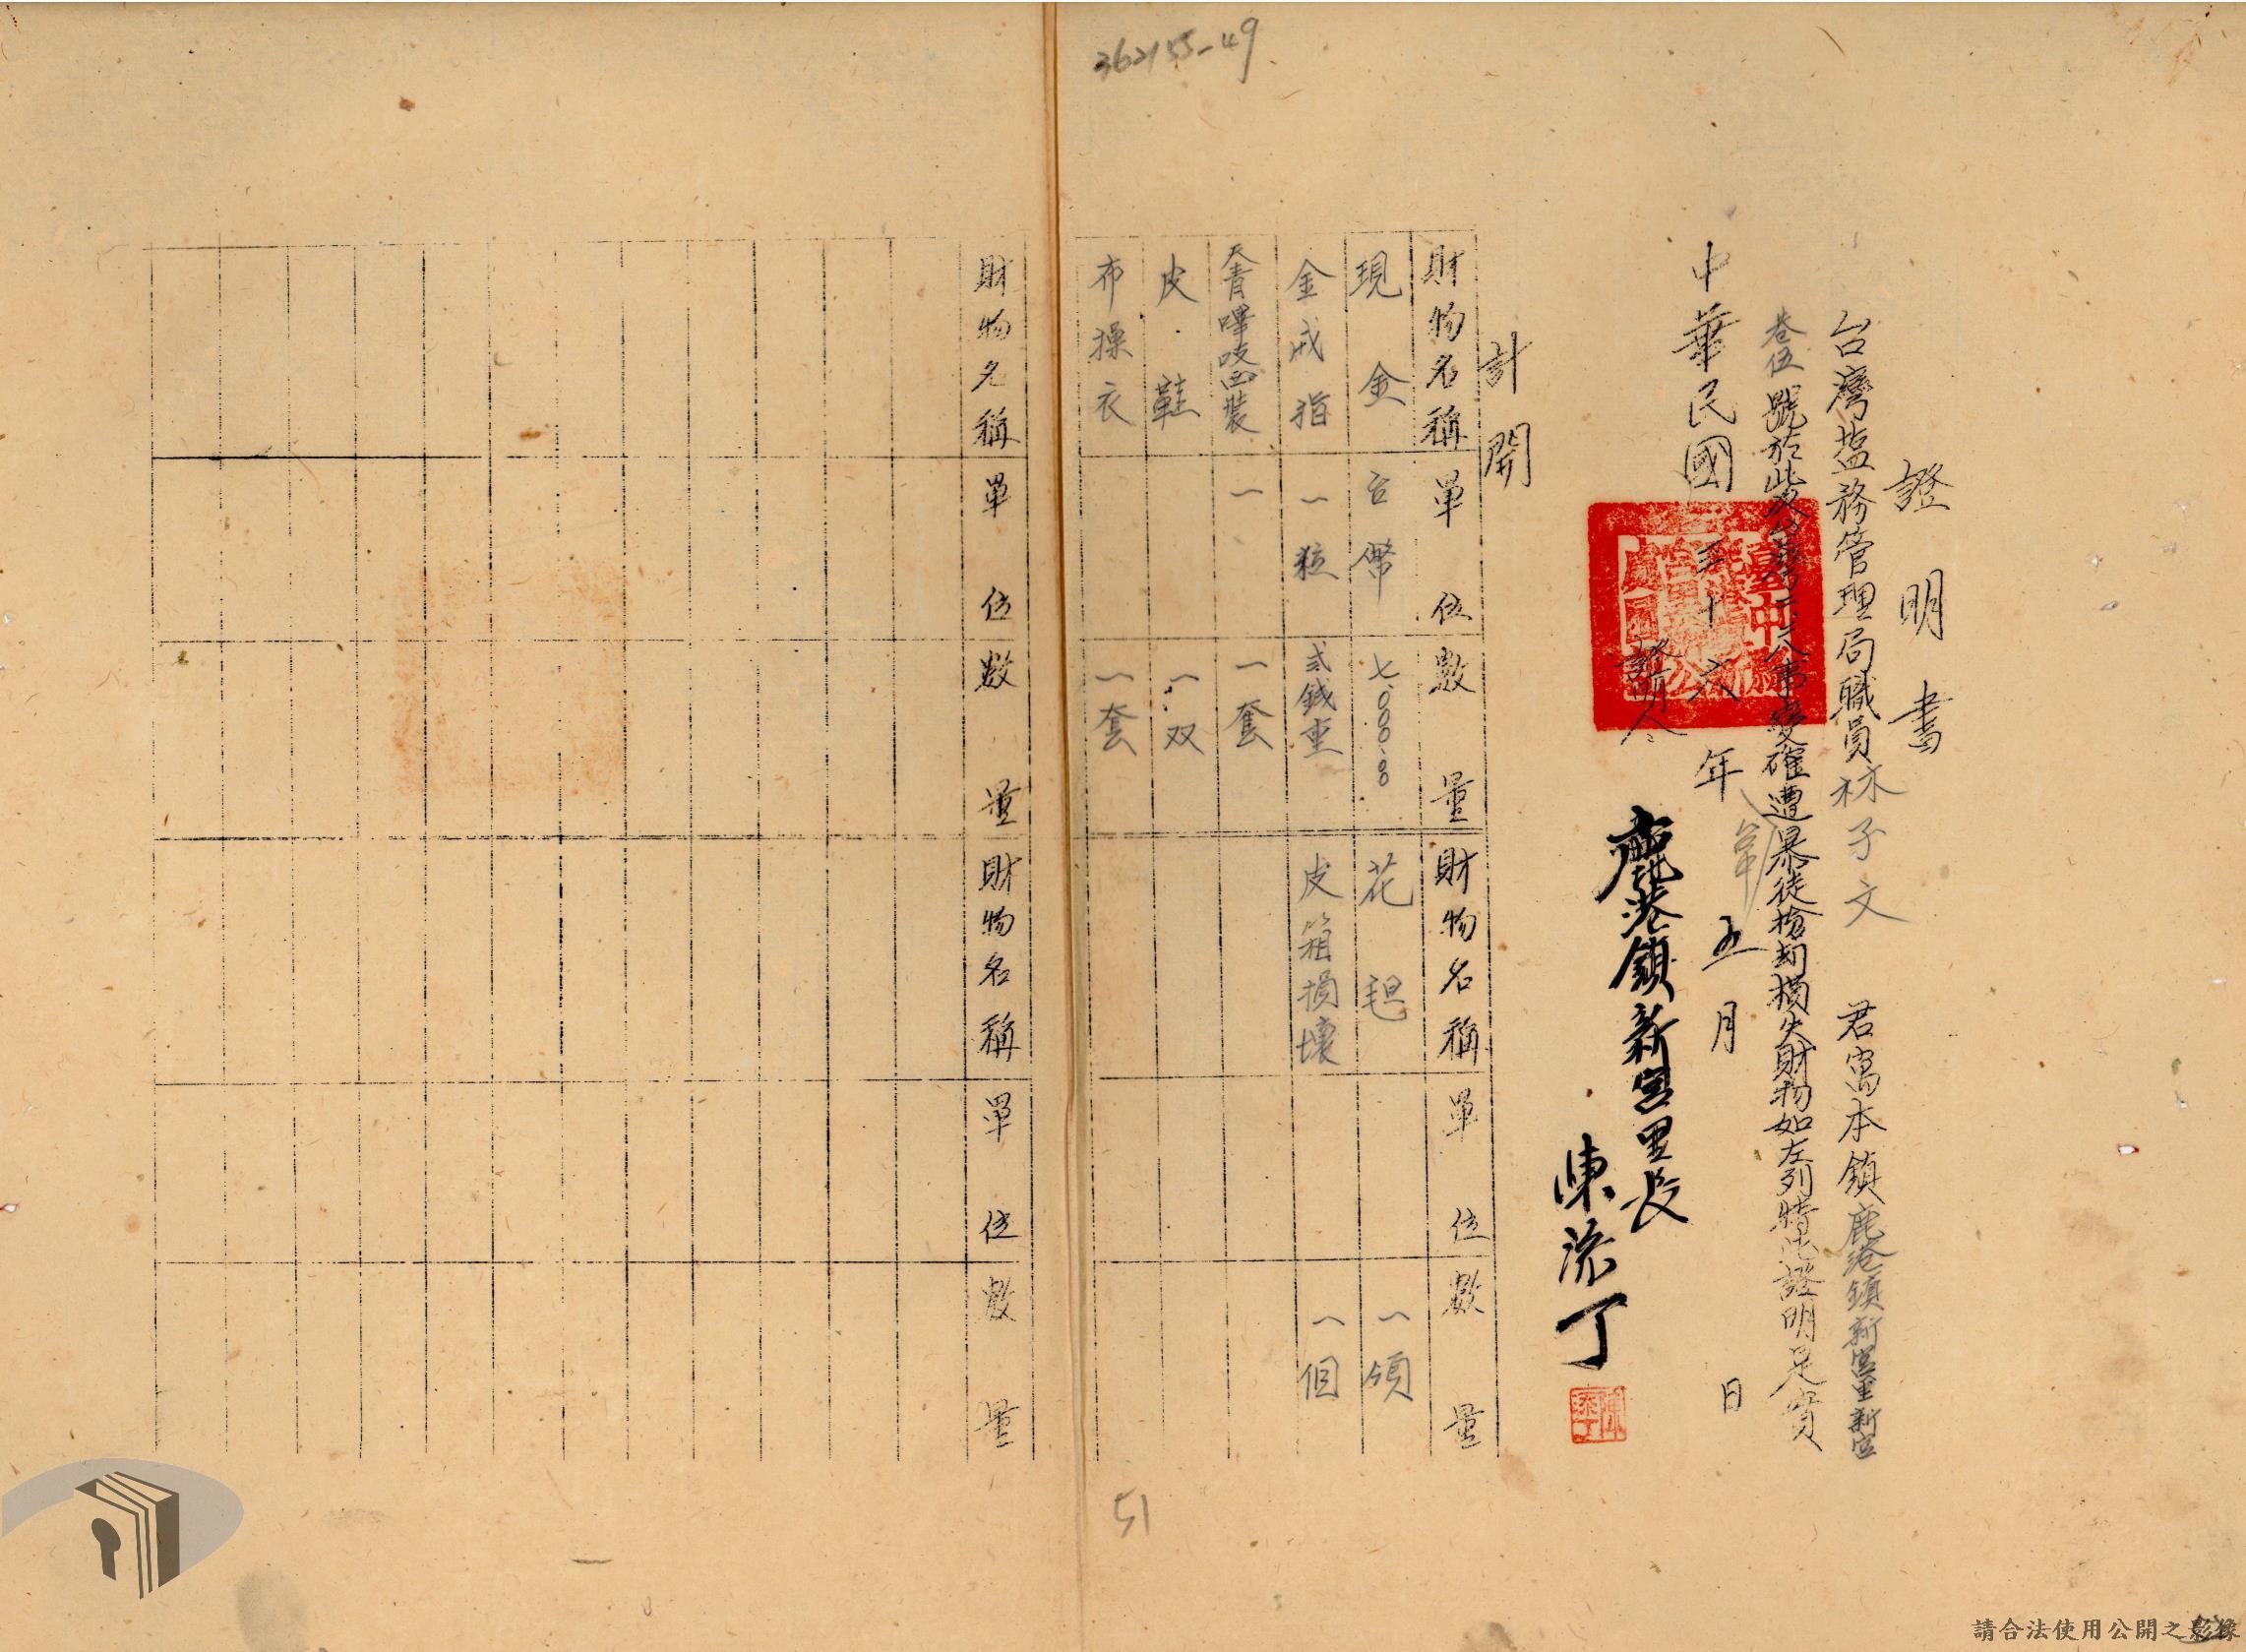 362155-49
證明書
台灣塩務管理局職員林子文 君寓本鎮鹿港鎮新宮里新宮
巷伍號於此次台灣二二八事變確遭暴徒搶刧損失財物如左列特此證明是實
中華民國三十六年五月 日
證明人
鹿港鎮新宮里長
陳流丁
計開
財物名稱 單位 數量 財物名稱 單位 數量
現金 台幣 七.000.00 花毯 一領
金戒指 一粒 弍錢重 皮箱損壞 一個
天青嗶吱西裝 一 一套
皮鞋 一双
布操衣 一套
財物名稱 單位 數量 財物名稱 單位 數量
51
請合法使用公開之影像